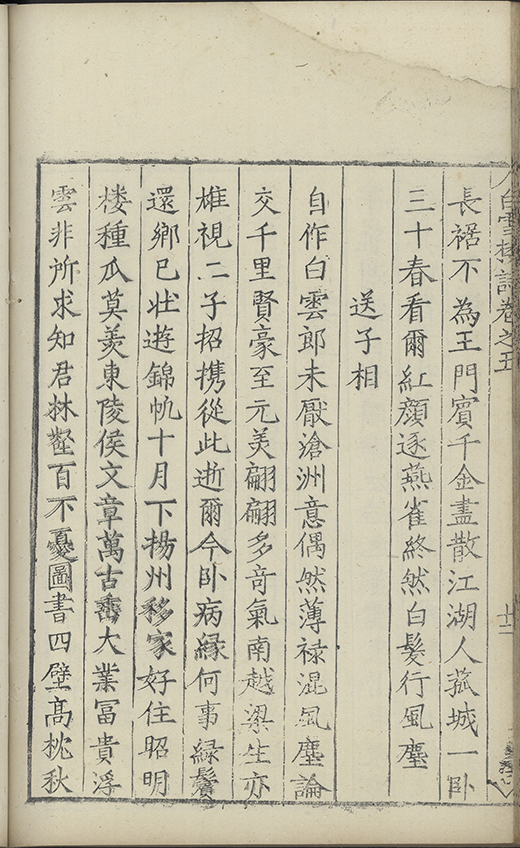 白雪樓詩卷之五
十二
長裾不為王門賓千金盡散江湖人孤城一卧
三十春看爾紅顏逐燕雀終然白髮行風塵
送子相
自作白雲郎未厭滄洲意偶然薄禄混風塵論
交千里賢豪至元美翩翩多奇氣南越梁生亦
雄視二子招携從此逝爾今卧病縁何事緑鬢
還鄉已壯遊錦帆十月下揚州移家好住昭明
楼種瓜莫羡東陵侯文章萬古垂大業冨貴浮
雲非所求知君林壑百不憂圖書四壁高枕秋